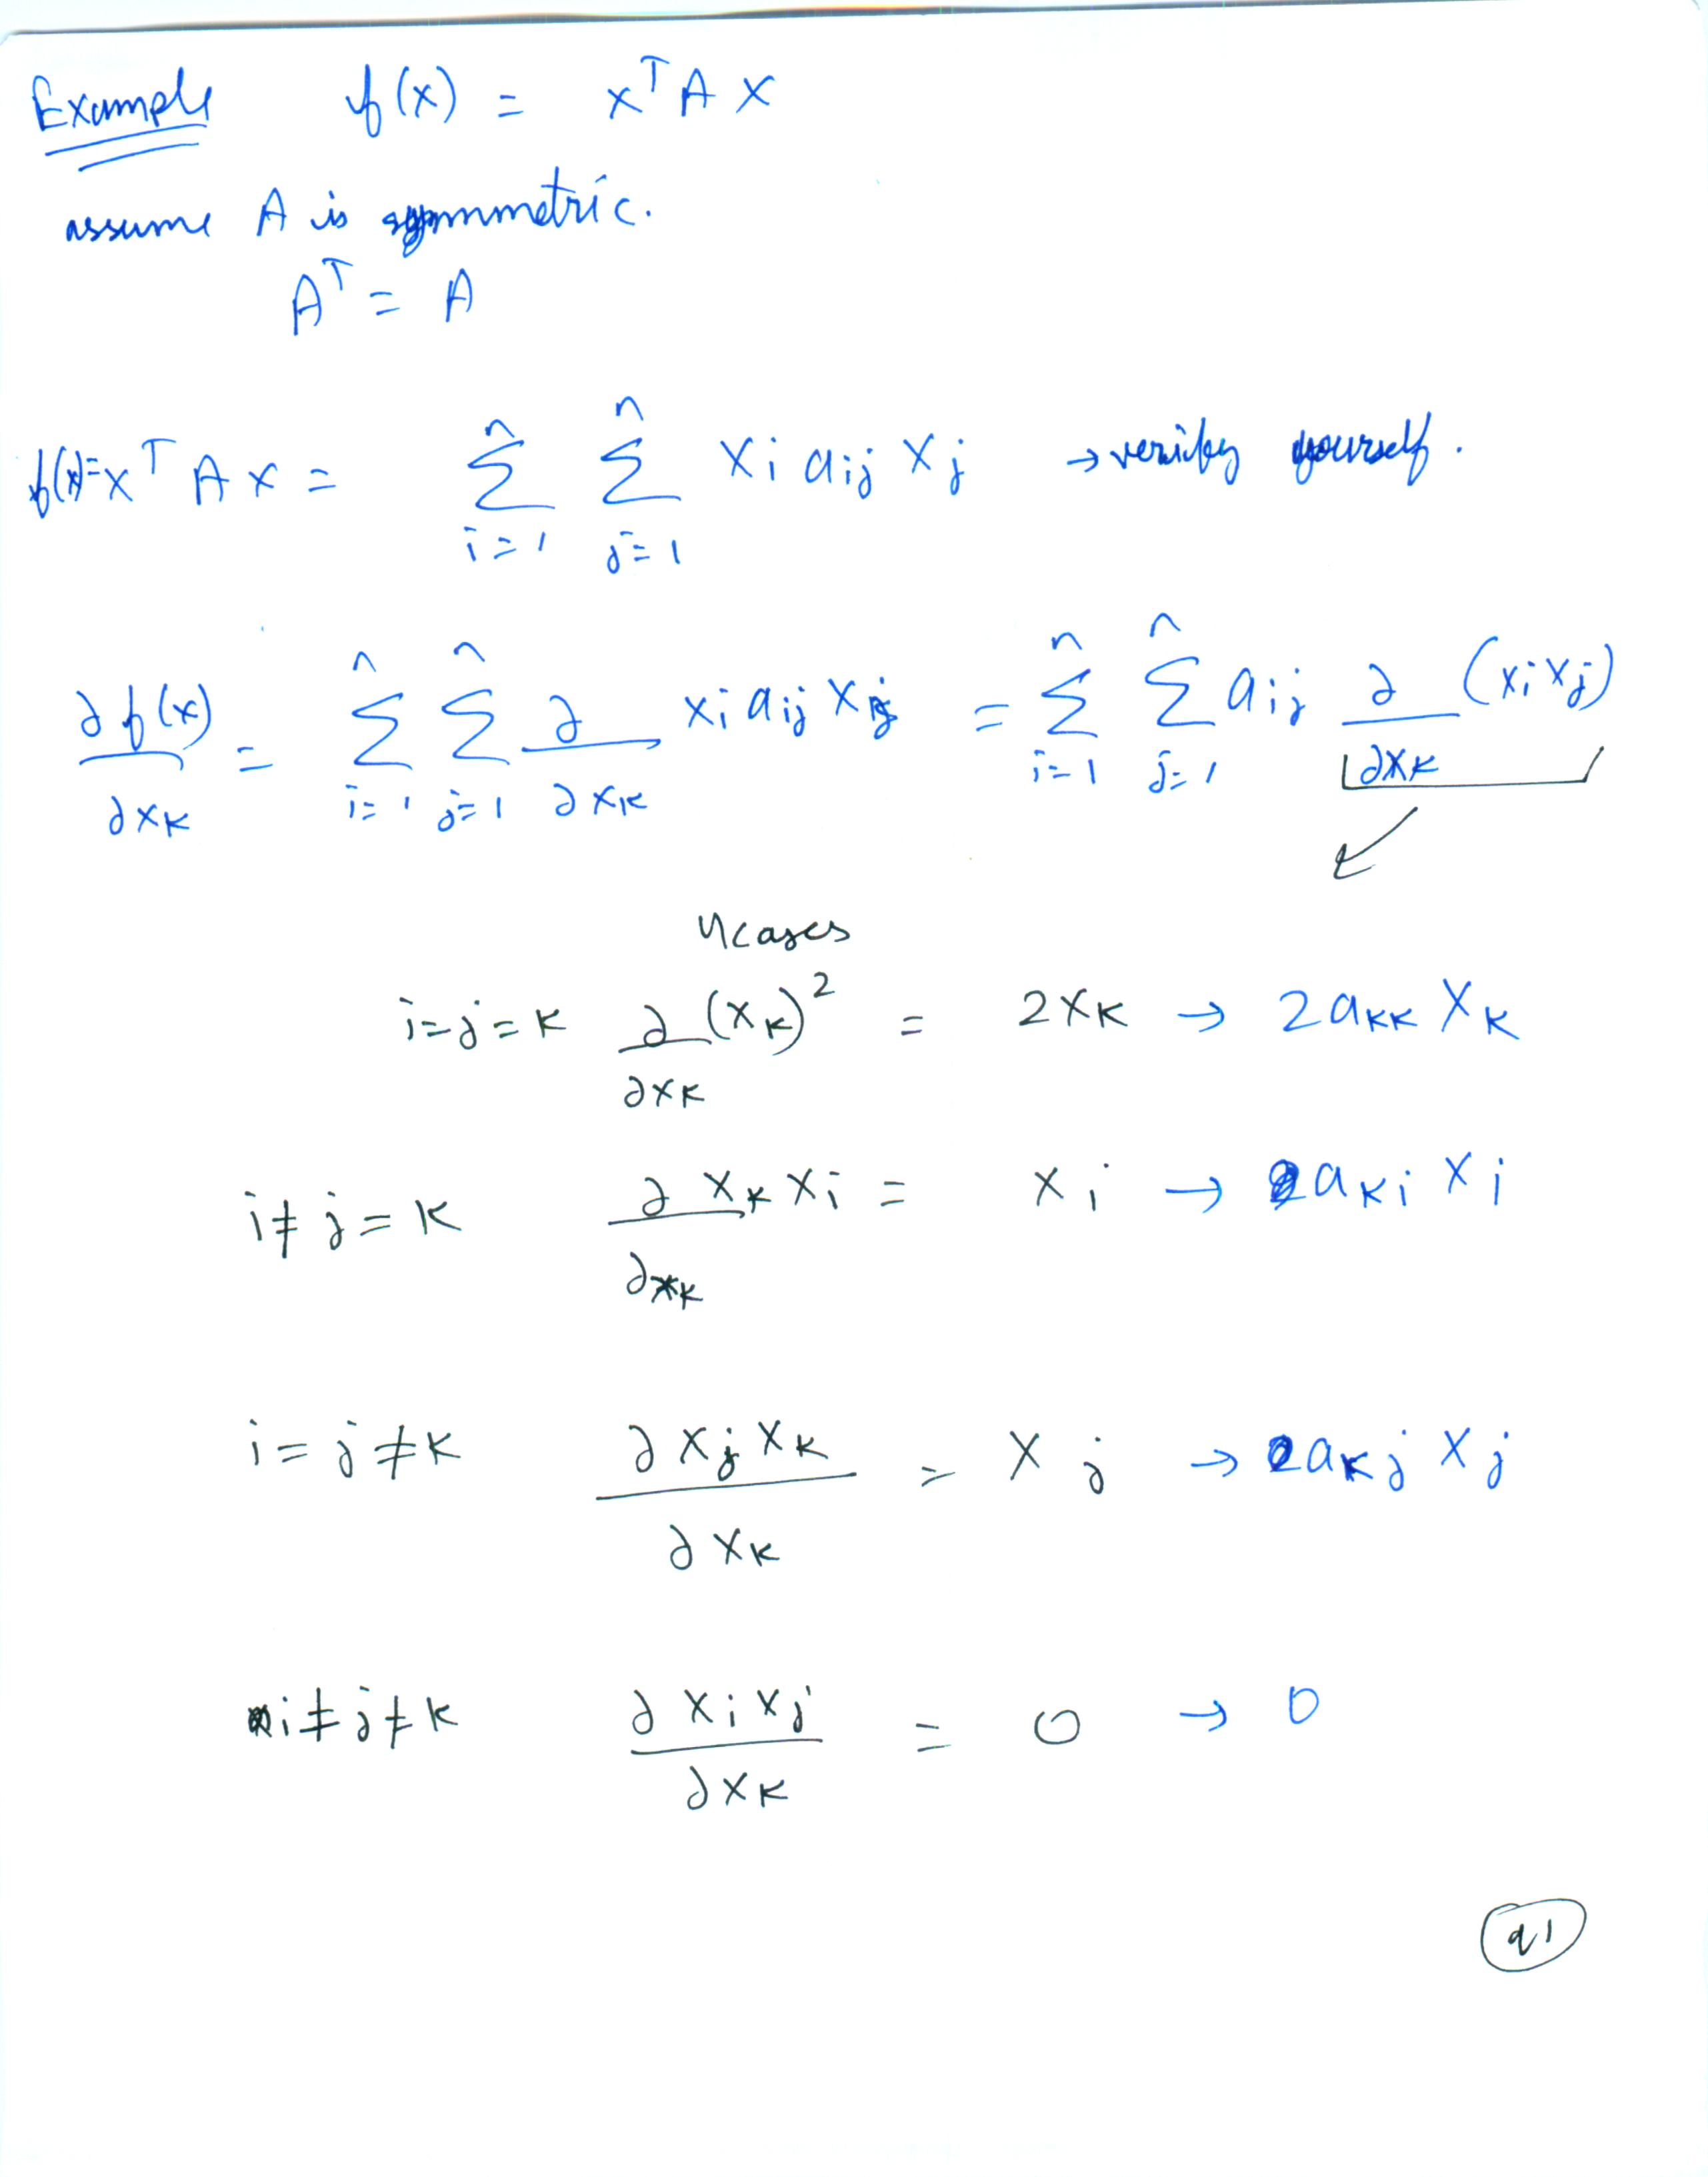 Example f(x) = xᵀ A x
assume A is symmetric.
Aᵀ = A
f(x) = xᵀ A x = ∑_{i=1}^{n} ∑_{j=1}^{n} xᵢ aᵢⱼ xⱼ → verify yourself.
∂f(x)/∂x_k = ∑_{i=1}^{n} ∑_{j=1}^{n} ∂/∂x_k xᵢ aᵢⱼ xⱼ = ∑_{i=1}^{n} ∑_{j=1}^{n} aᵢⱼ ∂/∂x_k (xᵢ xⱼ)
4 cases
i = j = k ∂/∂x_k (x_k)² = 2x_k → 2a_kk x_k
i ≠ j = k ∂/∂x_k x_k xᵢ = xᵢ → a_ki xᵢ
i = j ≠ k ∂xⱼx_k/∂x_k = xⱼ → a_kj xⱼ
i ≠ j ≠ k ∂xᵢxⱼ/∂x_k = 0 → 0